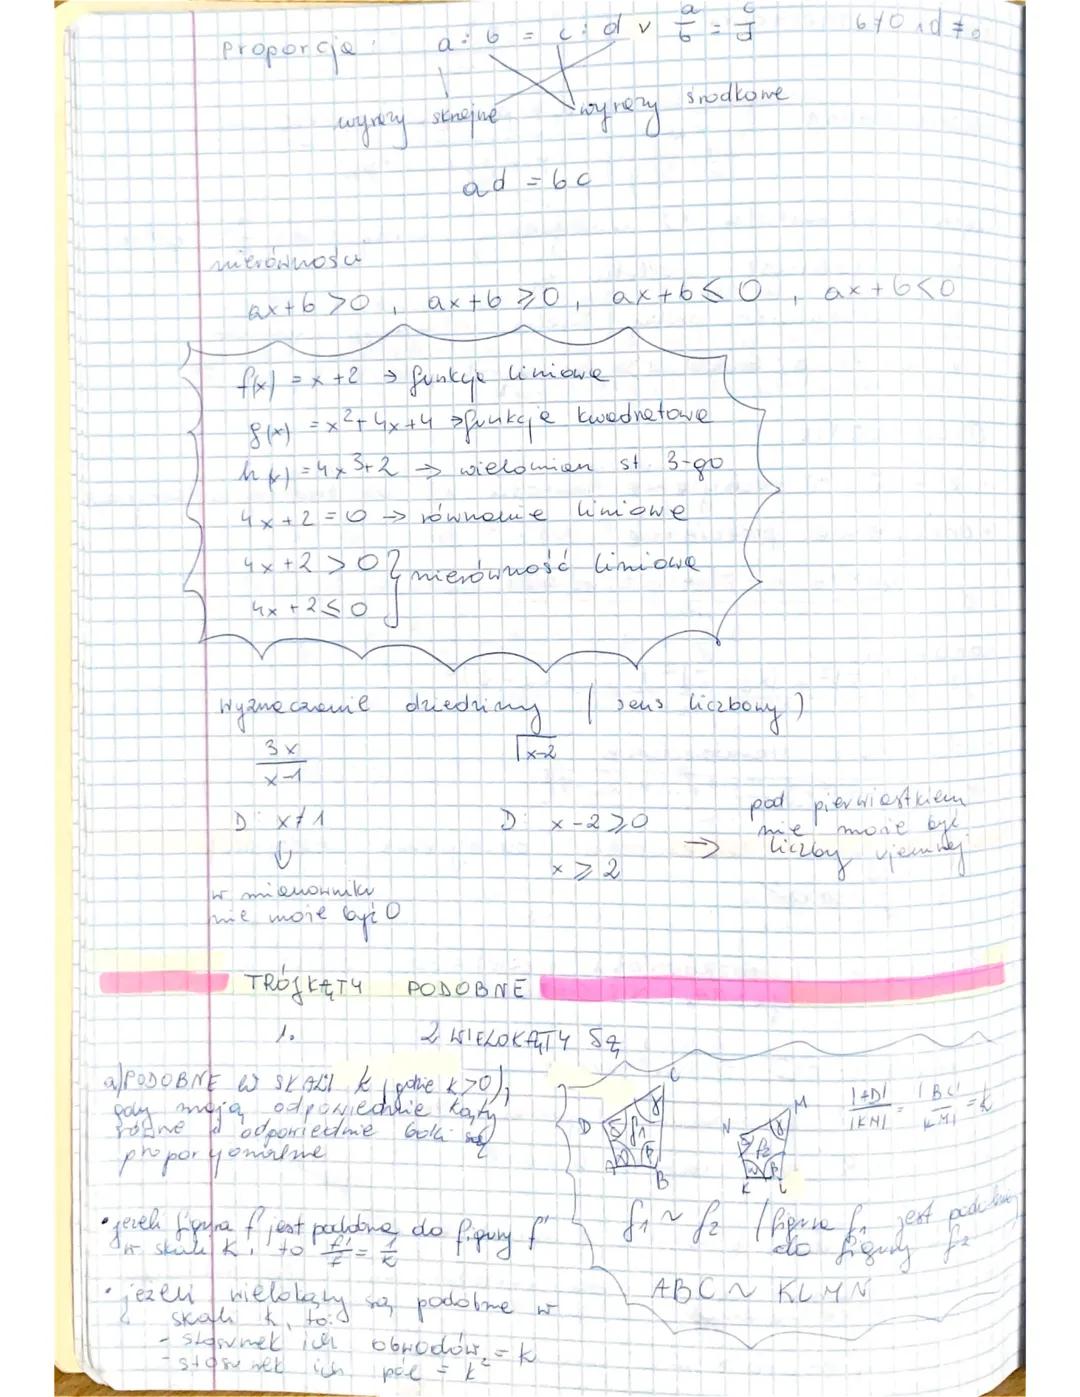 proporcja: a : b = c : d v a/b = c/d b≠0 ∧ d≠0
wyrazy skrajne wyrazy środkowe
ad = bc
nierówności
ax+b>0, ax+b⩾0, ax+b≤0, ax+b<0
f(x) = x+2 → funkcja liniowa
g(x) = x²+4x+4 → funkcja kwadratowa
h(x) = 4x³+2 → wielomian st. 3-go
4x+2=0 → równanie liniowe
4x+2>0 } nierówność liniowa
4x+2≤0
Wyznaczanie dziedziny (sens liczbowy)
3x/x-1 √x-2
D: x≠1 D: x-2⩾0 → pod pierwiastkiem
nie może być
liczby ujemnej
x⩾2
w mianowniku
nie może być 0
TRÓJKĄTY PODOBNE
1. 2 WIELOKĄTY SĄ
a) PODOBNE W SKALI k (gdzie k>0),
gdy mają odpowiednie kąty
równe a odpowiednie boki są
proporcjonalne
D C A B δ γ f1 α β
N M K L δ γ f2 α β
|AD|/|KN| = |BC|/|LM| = k
• jeżeli figura f jest podobna do figury f'
w skali k, to f'/f = 1/k
f1 ~ f2 (figura f1 jest podobna
do figury f2
• jeżeli wielokąty są podobne w
skali k, to:
- stosunek ich obwodów = k
- stosunek ich pól = k²
ABC ~ KLMN